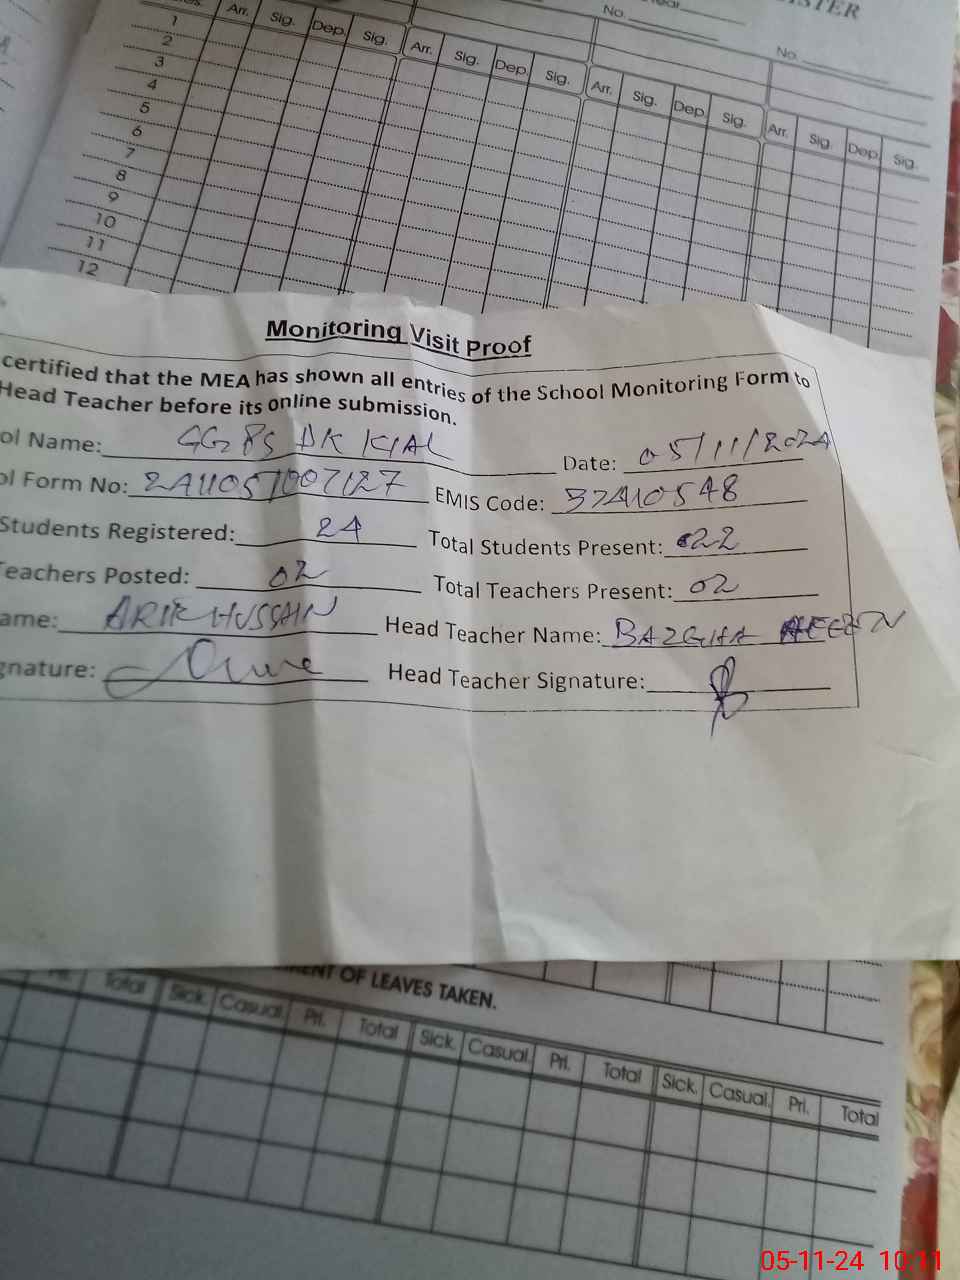 STER
No.
No.
Arr. Sig. Dep. Sig. Arr. Sig. Dep. Sig. Arr. Sig. Dep. Sig. Arr. Sig. Dep. Sig.
1
2
3
4
5
6
7
8
9
10
11
12
Monitoring Visit Proof
certified that the MEA has shown all entries of the School Monitoring Form to
Head Teacher before its online submission.
ol Name: KIAL Date: 05/11/2024
ol Form No: EMIS Code: 37410548
Students Registered: 24 Total Students Present: 22
Teachers Posted: 02 Total Teachers Present: 02
ame: HUSSAIN Head Teacher Name: BAZGHA
gnature: Head Teacher Signature:
ENT OF LEAVES TAKEN.
Prl. Total Sick. Casual. Prl. Total Sick. Casual. Prl. Total Sick. Casual. Prl. Total
05-11-24 10:11